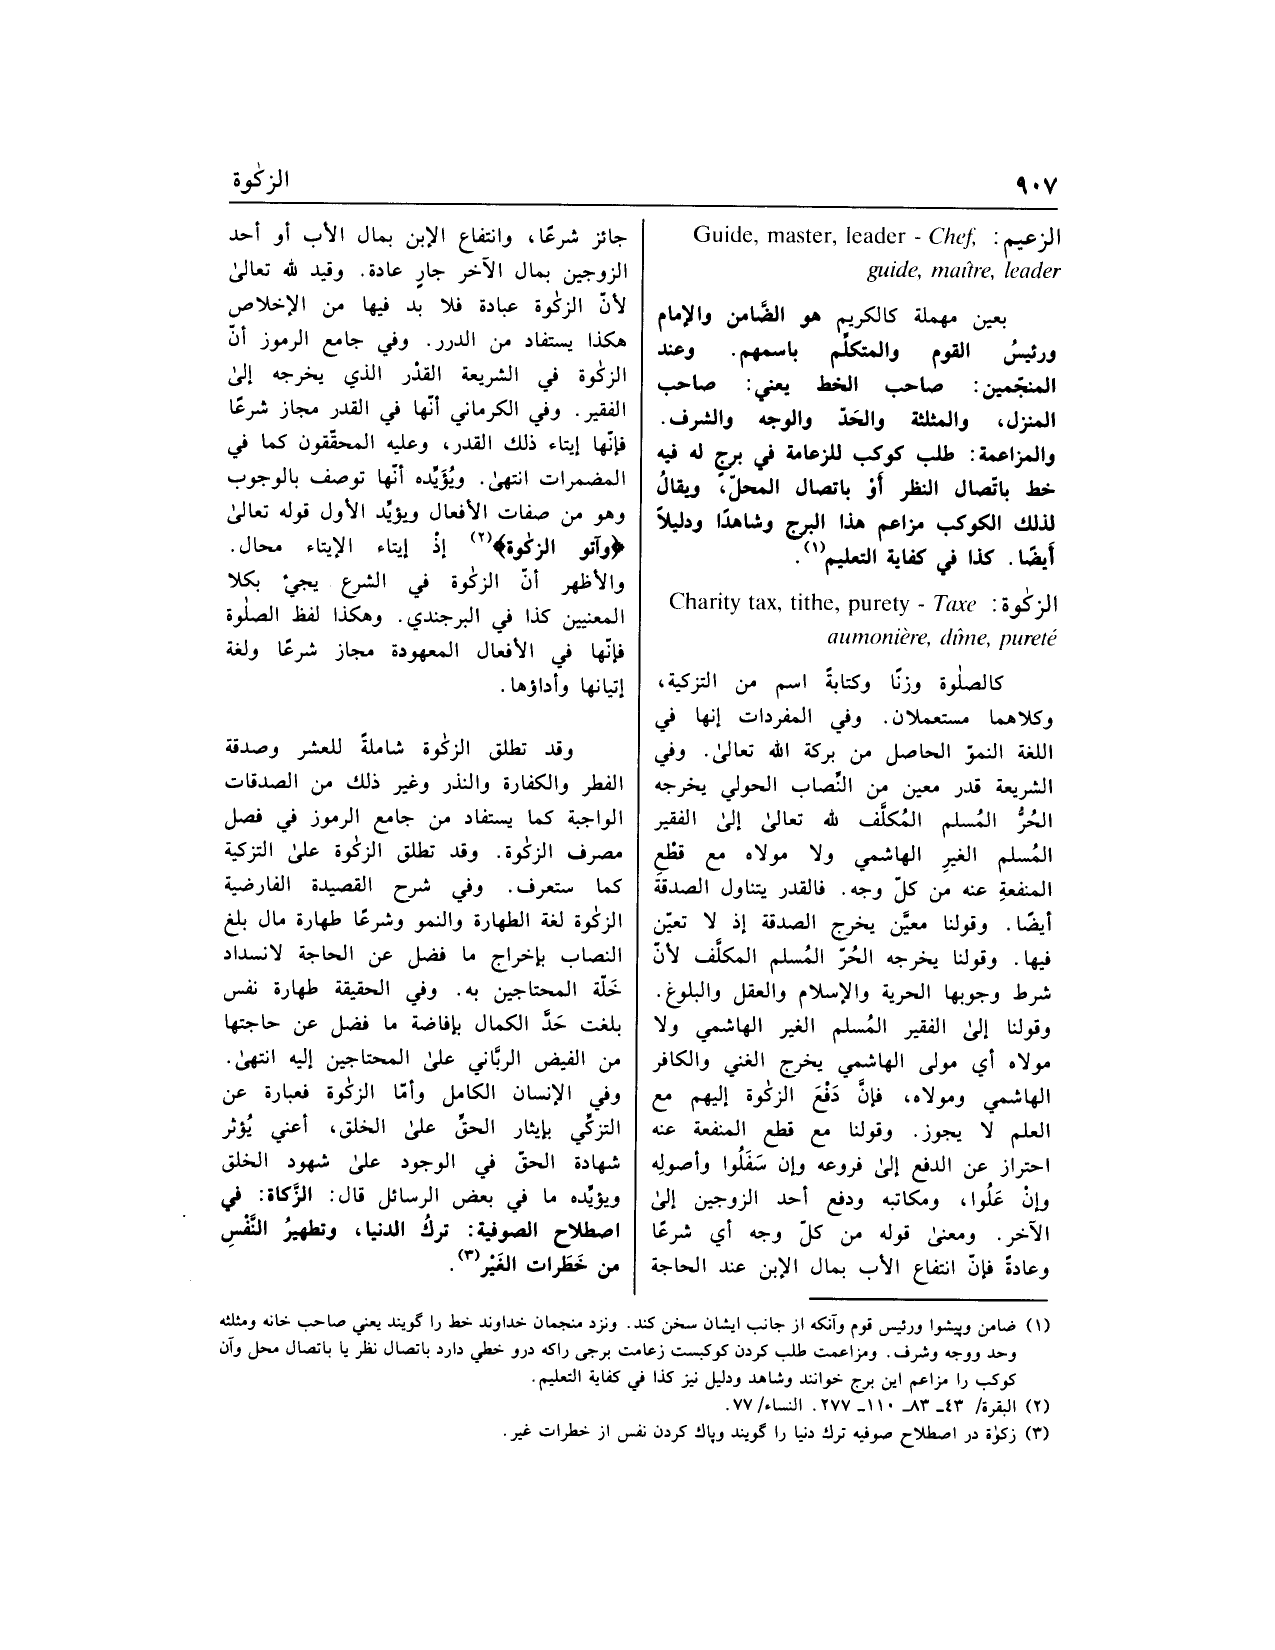 ٩٠٧
الزكٰوة
الزعيم: Guide, master, leader - Chef,
guide, maître, leader
بعين مهملة كالكريم هو الضَّامن والإمام
ورئيسُ القوم والمتكلِّم باسمهم. وعند
المنجّمين: صاحب الخط يعني: صاحب
المنزل، والمثلثة والحَدّ والوجه والشرف.
والمزاعمة: طلب كوكب للزعامة في برجٍ له فيه
خط باتّصال النظر أَوْ باتصال المحلّ، ويقالُ
لذلك الكوكب مزاعم هذا البرج وشاهدًا ودليلاً
أيضًا. كذا في كفاية التعليم(١).
الزكٰوة: Charity tax, tithe, purety - Taxe
aumonière, dîme, pureté
كالصلٰوة وزنًا وكتابةً اسم من التزكية،
وكلاهما مستعملان. وفي المفردات إنها في
اللغة النموّ الحاصل من بركة الله تعالىٰ. وفي
الشريعة قدر معين من النِّصاب الحولي يخرجه
الحُرُّ المُسلم المُكلَّف لله تعالىٰ إلىٰ الفقير
المُسلم الغيرِ الهاشمي ولا مولاه مع قطْعِ
المنفعةِ عنه من كلّ وجه. فالقدر يتناول الصدقةَ
أيضًا. وقولنا معيَّن يخرج الصدقة إذ لا تعيّن
فيها. وقولنا يخرجه الحُرّ المُسلم المكلَّف لأنّ
شرط وجوبها الحرية والإسلام والعقل والبلوغ.
وقولنا إلىٰ الفقير المُسلم الغير الهاشمي ولا
مولاه أي مولى الهاشمي يخرج الغني والكافر
الهاشمي ومولاه، فإنَّ دَفْعَ الزكٰوة إليهم مع
العلم لا يجوز. وقولنا مع قطع المنفعة عنه
احتراز عن الدفع إلىٰ فروعه وإن سَفَلُوا وأصولِه
وإنْ عَلُوا، ومكاتبه ودفع أحد الزوجين إلىٰ
الآخر. ومعنىٰ قوله من كلّ وجه أي شرعًا
وعادةً فإنّ انتفاع الأب بمال الإبن عند الحاجة
جائز شرعًا، وانتفاع الإبن بمال الأب أو أحد
الزوجين بمال الآخر جارٍ عادة. وقيد لله تعالىٰ
لأنّ الزكٰوة عبادة فلا بد فيها من الإخلاص
هكذا يستفاد من الدرر. وفي جامع الرموز أنّ
الزكٰوة في الشريعة القدْر الذي يخرجه إلىٰ
الفقير. وفي الكرماني أنّها في القدر مجاز شرعًا
فإنّها إيتاء ذلك القدر، وعليه المحقّقون كما في
المضمرات انتهىٰ. ويُؤيِّده أنّها توصف بالوجوب
وهو من صفات الأفعال ويؤيِّد الأول قوله تعالىٰ
﴿وآتو الزكٰوة﴾(٢) إذْ إيتاء الإيتاء محال.
والأظهر أنّ الزكٰوة في الشرع يجيْ بكلا
المعنيين كذا في البرجندي. وهكذا لفظ الصلٰوة
فإنّها في الأفعال المعهودة مجاز شرعًا ولغة
إتيانها وأداؤها.
وقد تطلق الزكٰوة شاملةً للعشر وصدقة
الفطر والكفارة والنذر وغير ذلك من الصدقات
الواجبة كما يستفاد من جامع الرموز في فصل
مصرف الزكٰوة. وقد تطلق الزكٰوة علىٰ التزكية
كما ستعرف. وفي شرح القصيدة الفارضية
الزكٰوة لغة الطهارة والنمو وشرعًا طهارة مال بلغ
النصاب بإخراج ما فضل عن الحاجة لانسداد
خَلّة المحتاجين به. وفي الحقيقة طهارة نفس
بلغت حَدَّ الكمال بإفاضة ما فضل عن حاجتها
من الفيض الربَّاني علىٰ المحتاجين إليه انتهىٰ.
وفي الإنسان الكامل وأمّا الزكٰوة فعبارة عن
التزكِّي بإيثار الحقِّ علىٰ الخلق، أعني يُؤثر
شهادة الحقّ في الوجود علىٰ شهود الخلق
ويؤيِّده ما في بعض الرسائل قال: الزَّكاة: في
اصطلاح الصوفية: تركُ الدنيا، وتطهيرُ النَّفْسِ
من خَطَرات الغَيْر(٣).
(١) ضامن وپيشوا ورئيس قوم وآنكه از جانب ايشان سخن كند. ونزد منجمان خداوند خط را گويند يعني صاحب خانه ومثلثه
وحد ووجه وشرف. ومزاعمت طلب كردن كوكبست زعامت برجى راكه درو خطي دارد باتصال نظر يا باتصال محل وآن
كوكب را مزاعم اين برج خوانند وشاهد ودليل نيز كذا في كفاية التعليم.
(٢) البقرة/ ٤٣ـ ٨٣ـ ١١٠ـ ٢٧٧. النساء/ ٧٧.
(٣) زكوٰة در اصطلاح صوفيه ترك دنيا را گويند وپاك كردن نفس از خطرات غير.